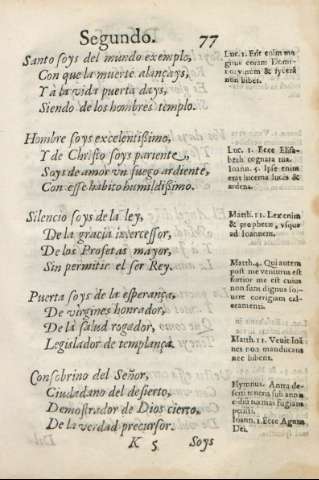 Segundo. 77
Santo soys del mundo exemplo,
Con que la muerte alançays,
Y à la vida puerta days,
Siendo de los hombres templo.
Luc. 1. Erit enim magnus coram Domi-
no: vinum & sycera
non bibet.
Hombre soys excelentissimo,
Y de Christo soys pariente,
Soys de amor vn fuego ardiente,
Con esse habito humildissimo.
Luc. 1. Ecce Elisa-
beth cognata tua.
Ioann. 5. Ipse enim
erat lucerna lucēs &
ardens.
Silencio soys de la ley,
De la gracia intercessor,
De los Profetas mayor,
Sin permitir el ser Rey.
Matth. 11. Lex enim
& prophetæ, vsque
ad Ioannem.
Matth. 4. Qui autem
post me venturus est
fortior me est cuius
non sum dignus sol-
uere corrigiam cal-
ceamenti.
Puerta soys de la esperança,
De virgines honrador,
De la salud rogador,
Legislador de templança.
Matth. 11. Venit Ioã
nes non manducans
nec bibens.
Consobrino del Señor,
Ciudadano del desierto,
Demostrador de Dios cierto,
De la verdad precursor.
Hymnus. Antra de-
serti teneris sub annis
Ioann. 1. Ecce Agnus
Dei.
K 5 Soys